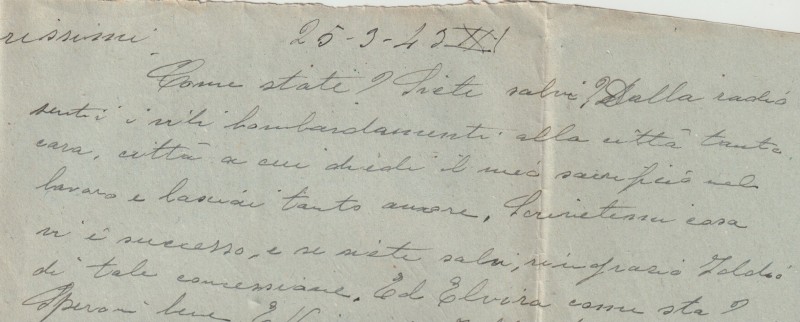 rissimi 25-3-43 XXI
Come state? Siete salvi? Dalla radio
sentii i vili bombardamenti alla città tanto
cara, città a cui diedi il mio sacrificio nel
lavoro e lasciai tanto amore. Scrivetemi cosa
vi è successo, e se siete salvi, ringrazio Iddio
di tale concessione. Ed Elvira come sta?
Speroni bene